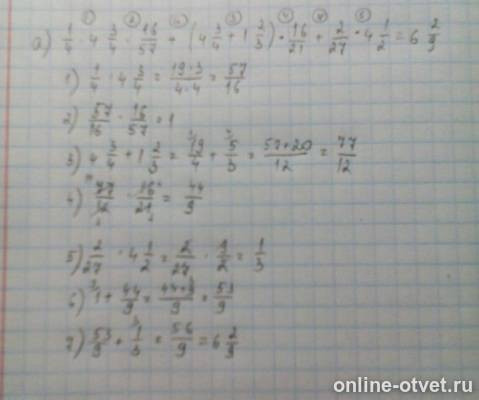 а) 1/4 · 4 3/4 · 16/57 + (4 3/4 + 1 2/3) · 16/21 + 2/27 · 4 1/2 = 6 2/9
1) 1/4 · 4 3/4 = 19·3/4·4 = 57/16
2) 57/16 · 16/57 = 1
3) 4 3/4 + 1 2/3 = 19/4 + 5/3 = 57+20/12 = 77/12
4) 77/12 · 16/21 = 44/9
5) 2/27 · 4 1/2 = 2/27 · 9/2 = 1/3
6) 1 + 44/9 = 44+9/9 = 53/9
7) 53/9 + 1/3 = 56/9 = 6 2/9
online-otvet.ru